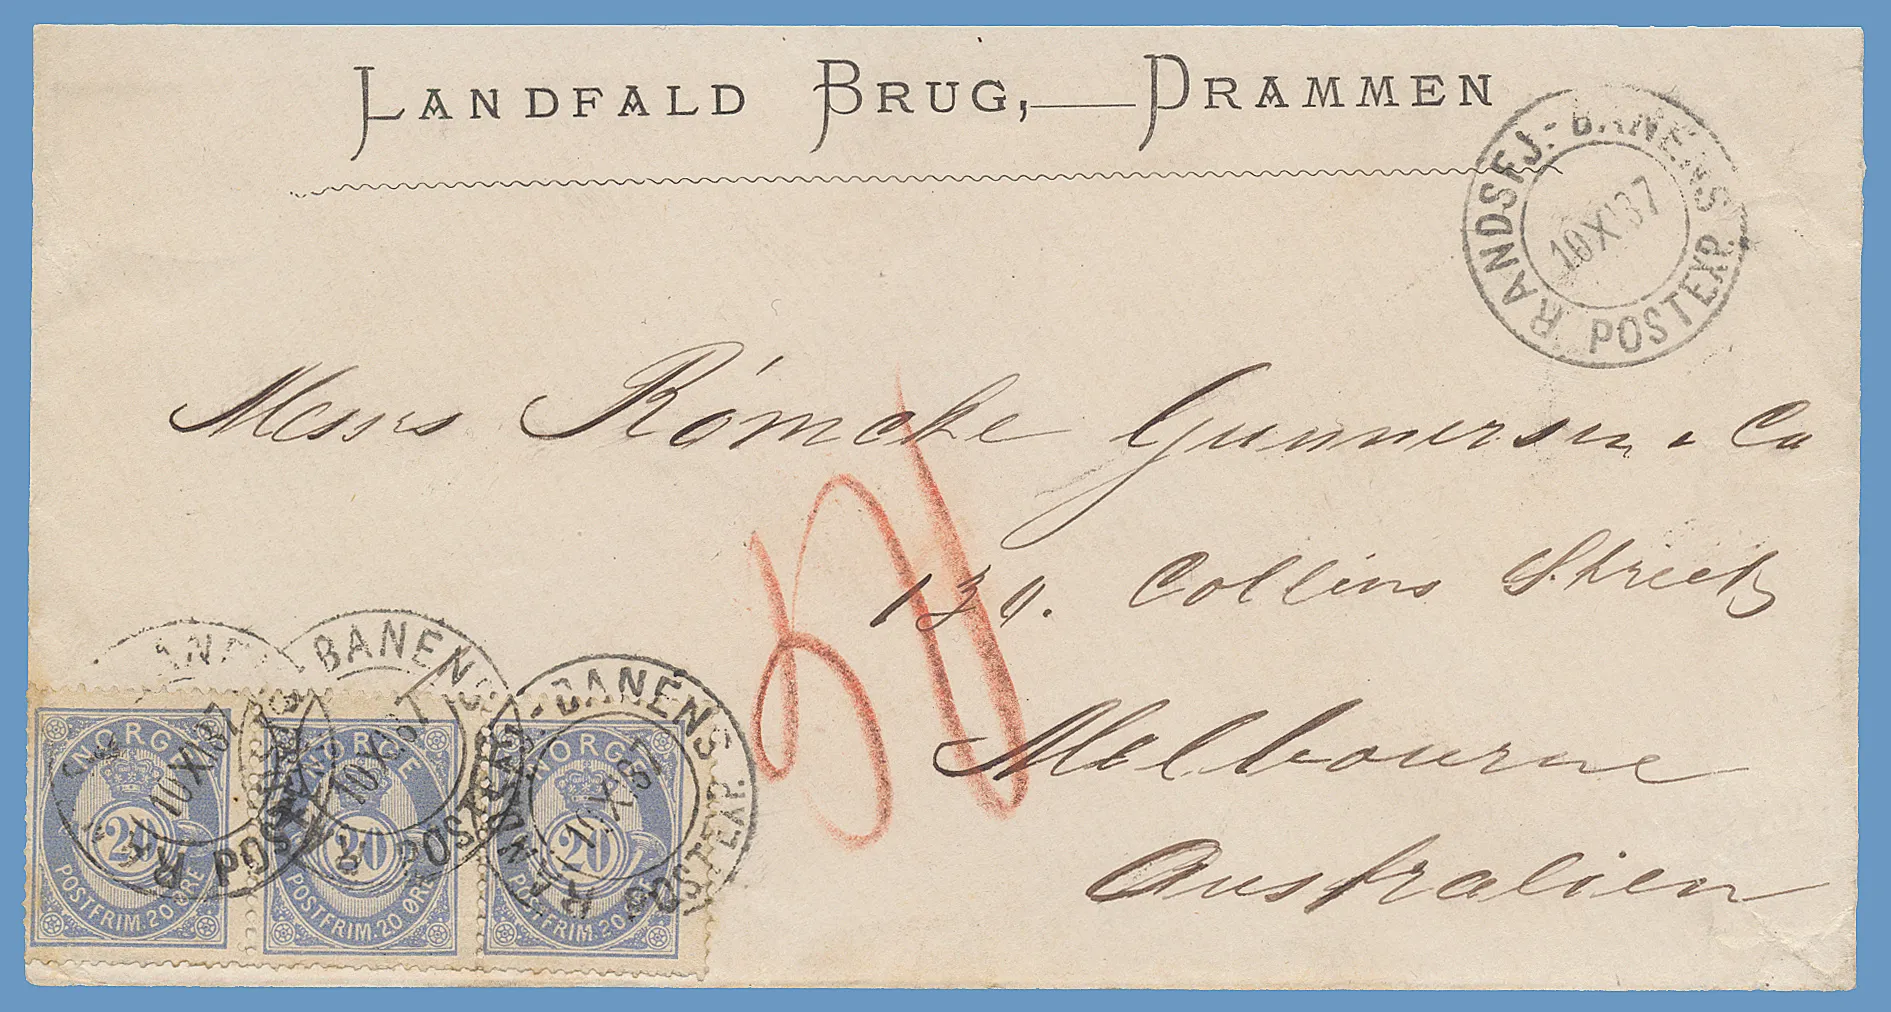 LANDFALD BRUG,—DRAMMEN
RANDSFJ.-BANENS POSTEXP.
10 X 87
Messrs Römcke Gunnersen & Co
130. Collins Street
Melbourne
Australien
BANENS POSTEXP. R
10 X 87
BANENS POSTEXP. R
10 X 87
BANENS POSTEXP. RANDSFJ.-
10 X 87
NORGE
20
POSTFRIM. 20 ØRE
NORGE
20
POSTFRIM. 20 ØRE
NORGE
20
POSTFRIM. 20 ØRE